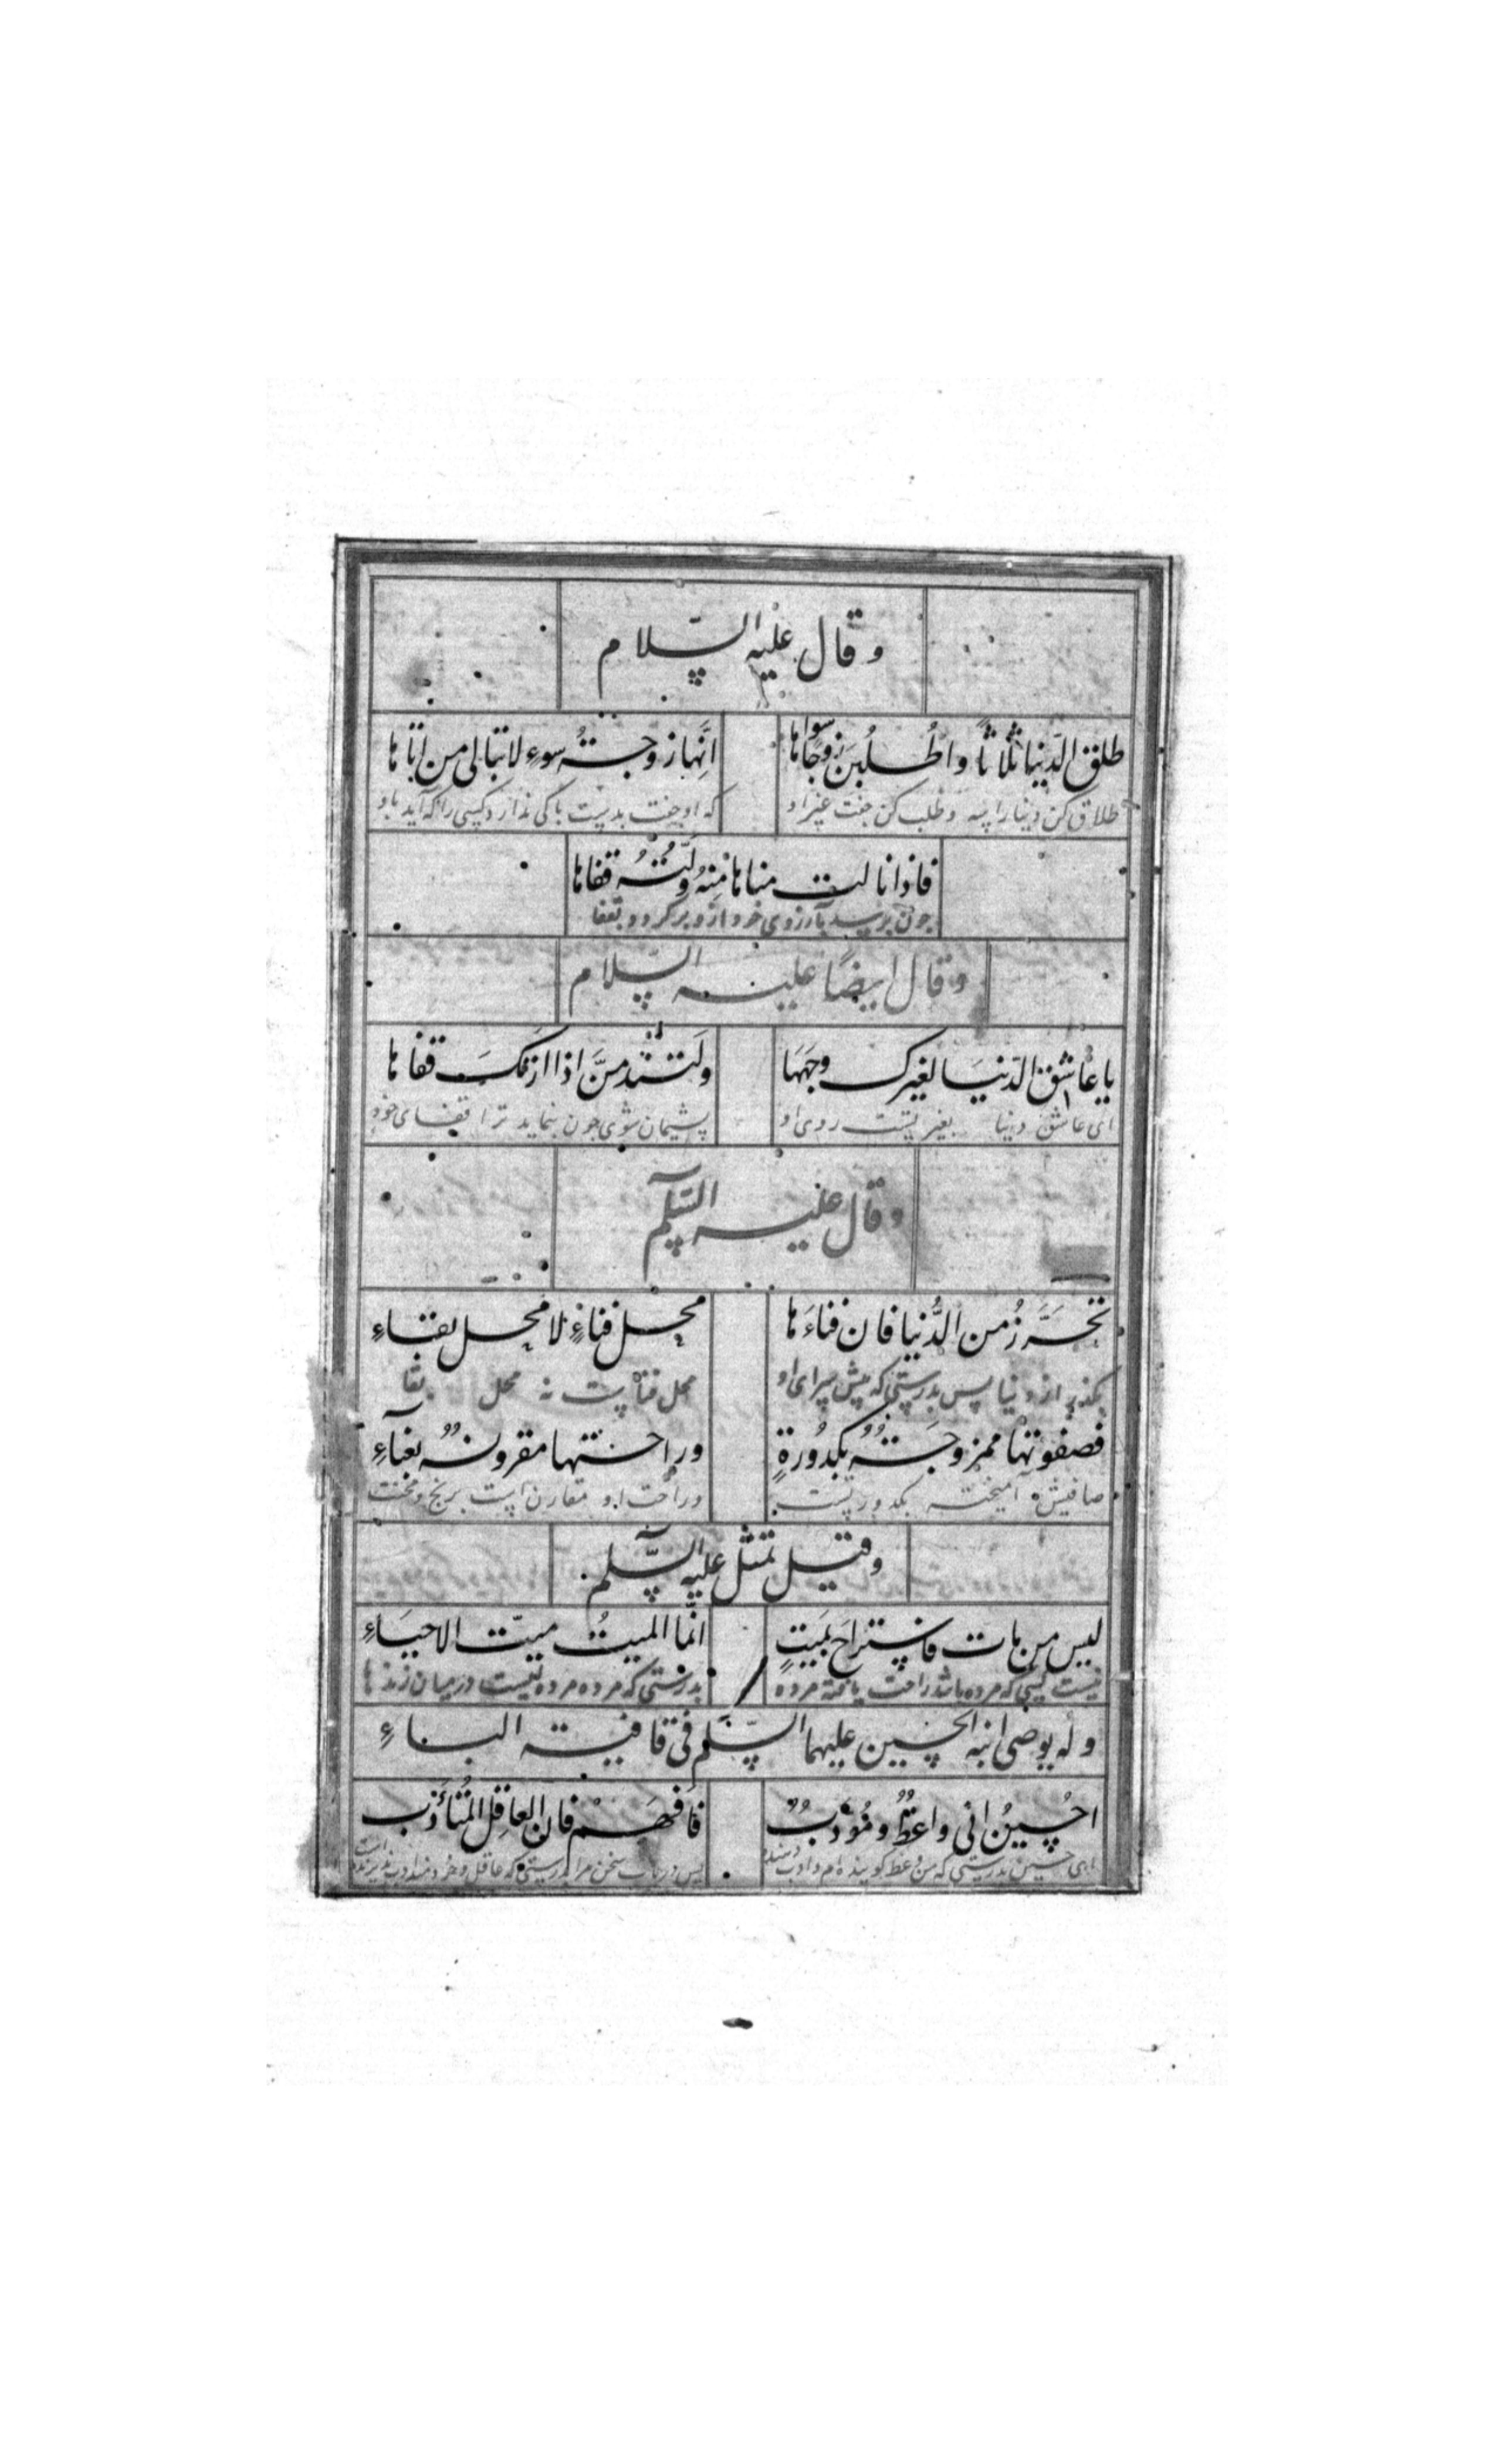 وقال عليه السلام
طلق الدنيا ثلاثاً واطلبن زوجاً سواها انها زوجة سوء لا تبالى من اتاها
طلاق کن دنیا را سه و طلب کن جفت غیر او که او جفت بدیست باکی ندارد کسی را که آید باو
فاذا نالت مناها منه ولته قفاها
چون برسد بآرزوی خود ازو برگردد بقفا
وقال ايضًا عليه السلام
يا عاشق الدنيا لغيرك وجهها ولتندمنّ اذا ارتك قفاها
ای عاشق دنیا بغیر تست روی او پشیمان شوی چون بنماید ترا قفای خود
وقال عليه السلم
تحرز من الدُّنيا فان فناءها محل فناءٍ لا محل بقاءِ
از دنیا پس بدرستی که پیش سرای او محل فناست نه محل بقا
فصفوتها ممزوجةٌ بكدُورةٍ وراحتها مقرونةٌ بعناءِ
صافیش آمیخته بکدورتست وراحت او مقارن است برنج و محنت
وقيل تمثل عليه السّلم
ليس من مات فاستراح بميتٍ انّما الميتُ ميّت الاحياءِ
نیست کسی که مرده باشد راحت یافته مرده بدرستی که مرده مرده ایست در میان زندها
وله يوصى ابنه الحسين عليهما السّلم فى قافية الباءِ
احُسينُ انى واعظٌ ومُؤدبٌ فافهم فان العاقل المُتأدّب
ای حسین بدرستی که من وعظ گوینده ام و ادب دهنده پس دریاب سخن مرا بدرستی که عاقل و خردمند ادب پذیرنده است